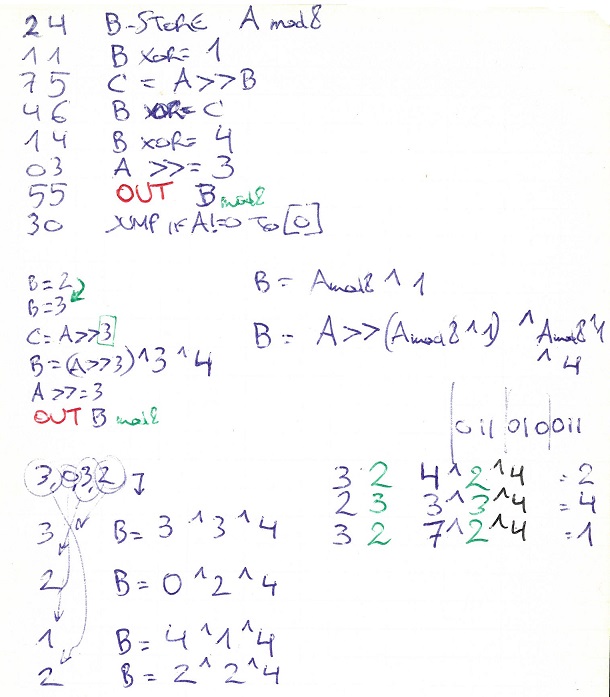 24 B-STORE A mod8
11 B XOR= 1
75 C = A>>B
46 B XOR= C
14 B XOR= 4
03 A >>= 3
55 OUT B mod8
30 JUMP IF A!=0 TO [0]
B=2
B=3
C=A>>3
B=(A>>3)^3^4
A >>=3
OUT B mod8
B= Amod8 ^ 1
B= A>>(Amod8^1) ^Amod8^1
^4
011 010 011
3 2 4^2^4 =2
2 3 3^3^4 =4
3 2 7^2^4 =1
3,0,3,2
3 B= 3^3^4
2 B= 0^2^4
1 B= 4^1^4
2 B= 2^2^4